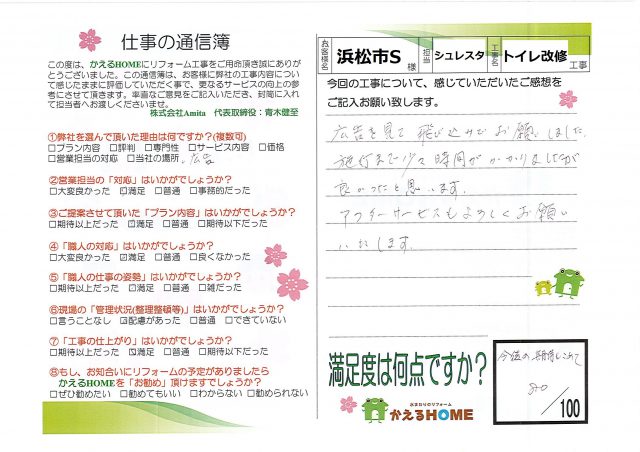 仕事の通信簿
この度は、かえるHOMEにリフォーム工事をご用命頂き誠にありが
とうございました。この通信簿は、お客様に弊社の工事内容につい
て感じたままに評価していただく事で、更なるサービスの向上の参
考にさせて頂きます。率直なご意見をご記入いただき、封筒に入れ
て担当者へお渡しくださいませ。
株式会社Amita 代表取締役：青木健至
①弊社を選んで頂いた理由は何ですか?(複数可)
□プラン内容 □評判 □専門性 □サービス内容 □価格
□営業担当の対応 □当社の場所 広告
②営業担当の「対応」はいかがでしょうか?
□大変良かった ☑満足 □普通 □事務的だった
③ご提案させて頂いた「プラン内容」はいかがでしょうか?
□期待以上だった ☑満足 □普通 □期待以下だった
④「職人の対応」はいかがでしょうか?
□大変良かった ☑満足 □普通 □良くなかった
⑤「職人の仕事の姿勢」はいかがでしょうか?
□期待以上だった ☑満足 □普通 □雑だった
⑥現場の「管理状況(整理整頓等)」はいかがでしょうか?
□言うことなし ☑配慮があった □普通 □できていない
⑦「工事の仕上がり」はいかがでしょうか?
□期待以上だった ☑満足 □普通 □期待以下だった
⑧もし、お知合いにリフォームの予定がありましたら
かえるHOMEを「お勧め」頂けますでしょうか?
□ぜひ勧めたい □勧めてもいい □わからない □勧められない
お客様名 浜松市S 様 担当 シュレスタ 工事名 トイレ改修 工事
今回の工事について、感じていただいたご感想を
ご記入お願い致します。
広告を見て飛び込みでお願いしました。
施行まで少々時間がかかりましたが
良かったと思います。
アフターサービスもよろしくお願い
いたします。
満足度は何点ですか?
今後の期待もこめて
80
/100
水まわりのリフォーム
かえるHOME